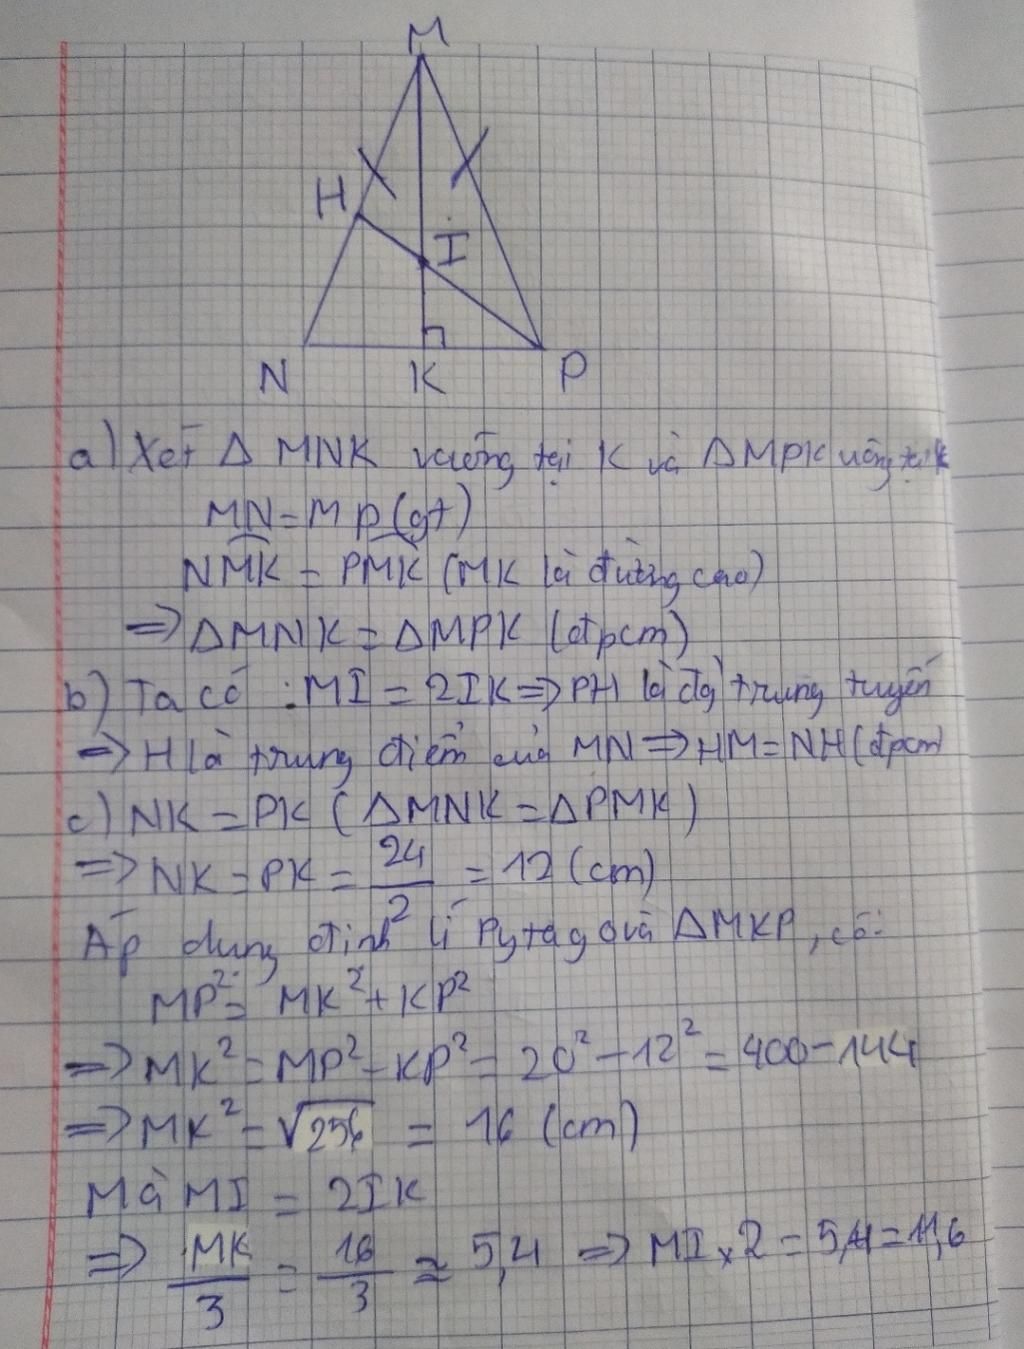 M
H
I
N K P
a) Xét Δ MNK vuông tại K và ΔMPK vuông tại K
MN = MP (gt)
NMK = PMK (MK là đường cao)
=> ΔMNK = ΔMPK (đpcm)
b) Ta có : MI = 2IK => PH là đg trung tuyến
=> H là trung điểm của MN => HM = NH (đpcm
c) NK = PK ( ΔMNK = ΔPMK )
=> NK = PK = 24/2 = 12 (cm)
Áp dụng định lí Pytago và ΔMKP, có:
MP² = MK² + KP²
=> MK² = MP² - KP² = 20² - 12² = 400 - 144
=> MK² = √256 = 16 (cm)
Mà MI = 2IK
=> MK/3 = 16/3 ≈ 5,4 => MI x 2 = 5,4 = 11,6